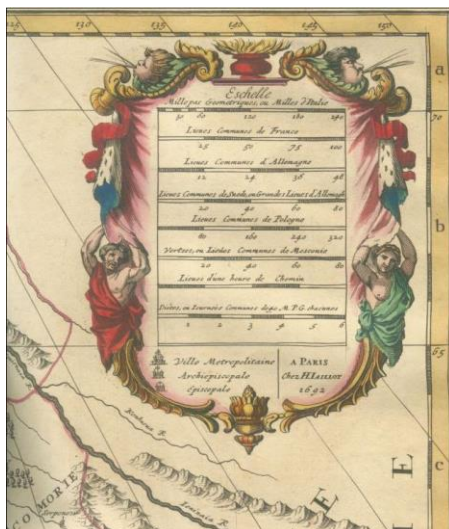 125 130 135 140 145 150
a
70
Eschelle
Mille pas Geometriques, ou Milles d'Italie
30 60 120 180 240
Lieues Communes de France
25 50 75 100
Lieues Communes d'Allemagne
12 24 36 48
Lieues Communes de Suede, ou Grandes Lieues d'Allemagne
20 40 60 80
Lieues Communes de Pologne
b
80 160 240 320
Verstes, ou Lieues Communes de Moscovie
20 40 60 80
Lieues d'une heure de Chemin
ou Iournées Communes de 30 M. P. G. chacunes
1 2 3 4 5 6
65
Ville Metropolitaine
Archiepiscopale
Episcopale
A PARIS
Chez H. IAILLOT
1692
c
E
E
CO MORIE